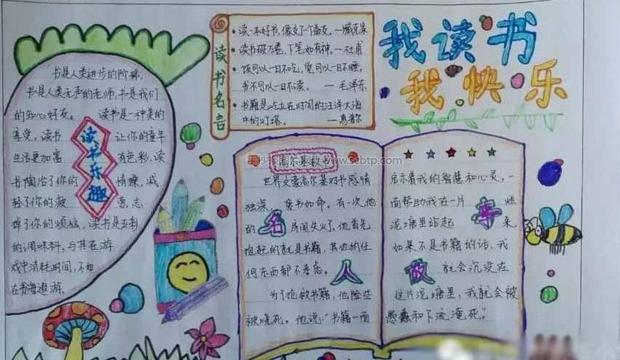 我读书
我快乐
读书名言
·读一本好书,像交了个益友。—臧克家
·读书破万卷,下笔如有神。—杜甫
·饭可以一日不吃,觉可以一日不睡,
书不可以一日不读。 —毛泽东
·书籍是屹立在时间的汪洋大海
中的灯塔。 —惠普尔
书是人类进步的阶梯,
书是人类无声的老师,书是我们
的知心好友。 读书是一种美的
享受,读书 让你的童年
生活更加富 有色彩,读
书陶冶了你的 情操,减
轻了你的疲
掉了你的烦恼,读书是五彩
的调味料,与其在游
戏中消耗时间,不如
在书海遨游。
读书乐趣
高尔基救书
世界文豪高尔基对书感情
独深, 爱书如命。有一次他
的 房间失火了,他首先
抢起的就是书籍,其他的任
何东西都不考虑。
为了抢救书籍,他险些
被烧死。他说:“书籍一面
启示着我的智慧和心灵,一
面帮助我在一片
泥塘里站起 来
如果不是书籍的话,我
就会沉没在
这片泥塘里,我就会被
愚蠢和下流淹死。”
名
人
故
事